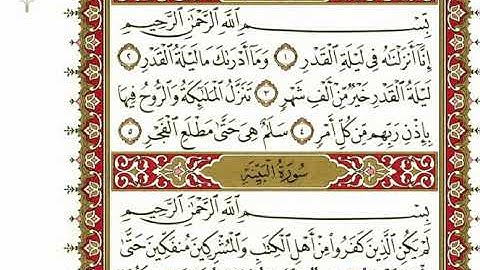 بِسْمِ ٱللَّهِ ٱلرَّحْمَٰنِ ٱلرَّحِيمِ
إِنَّآ أَنزَلْنَٰهُ فِى لَيْلَةِ ٱلْقَدْرِ ١ وَمَآ أَدْرَىٰكَ مَا لَيْلَةُ ٱلْقَدْرِ ٢
لَيْلَةُ ٱلْقَدْرِ خَيْرٌ مِّنْ أَلْفِ شَهْرٍ ٣ تَنَزَّلُ ٱلْمَلَٰٓئِكَةُ وَٱلرُّوحُ فِيهَا
بِإِذْنِ رَبِّهِم مِّن كُلِّ أَمْرٍ ٤ سَلَٰمٌ هِىَ حَتَّىٰ مَطْلَعِ ٱلْفَجْرِ ٥
سُورَةُ ٱلْبَيِّنَةِ
بِسْمِ ٱللَّهِ ٱلرَّحْمَٰنِ ٱلرَّحِيمِ
لَمْ يَكُنِ ٱلَّذِينَ كَفَرُوا۟ مِنْ أَهْلِ ٱلْكِتَٰبِ وَٱلْمُشْرِكِينَ مُنفَكِّينَ حَتَّىٰ